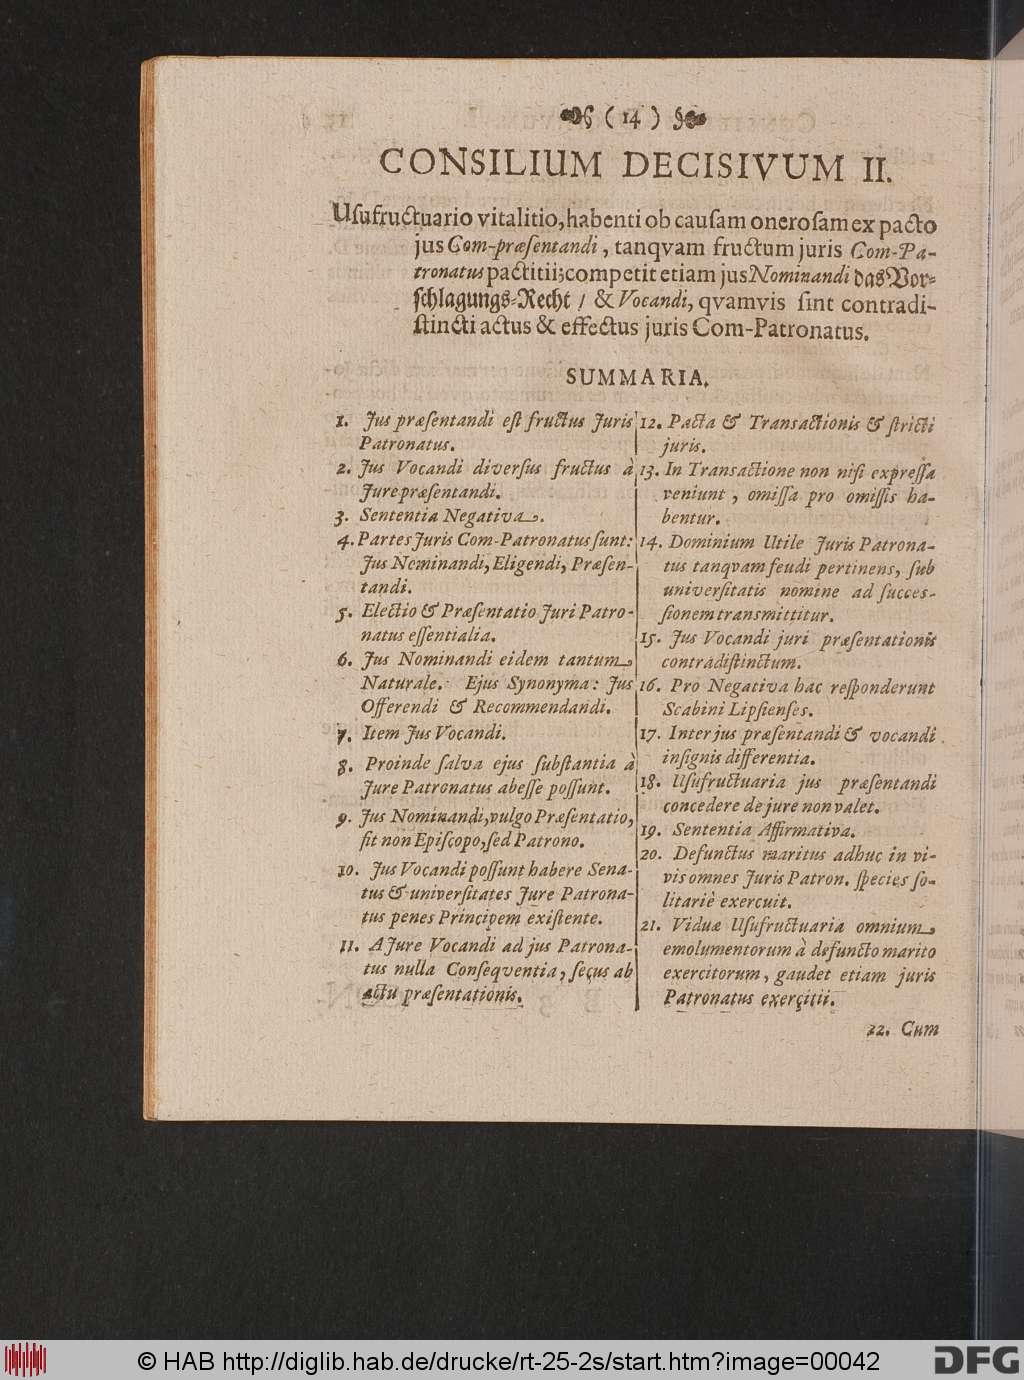 ( 14 )
CONSILIUM DECISIVUM II.
Uſufructuario vitalitio, habenti ob cauſam oneroſam ex pacto
jus Com-præſentandi, tanqvam fructum juris Com-Pa-
tronatus pactitii; competit etiam jus Nominandi das Vor-
ſchlagungs-Recht / & Vocandi, qvamvis ſint contradi-
ſtincti actus & effectus juris Com-Patronatus.
SUMMARIA.
1. Jus præſentandi eſt fructus Juris
Patronatus.
2. Jus Vocandi diverſus fructus à
Jure præſentandi.
3. Sententia Negativa.
4. Partes Juris Com-Patronatus ſunt:
Jus Nominandi, Eligendi, Præſen-
tandi.
5. Electio & Præſentatio Juri Patro-
natus eſſentialia.
6. Jus Nominandi eidem tantum
Naturale. Ejus Synonyma: Jus
Offerendi & Recommendandi.
7. Item Jus Vocandi.
8. Proinde ſalva ejus ſubſtantia à
Jure Patronatus abeſſe poſſunt.
9. Jus Nominandi, vulgo Præſentatio,
fit non Epiſcopo, ſed Patrono.
10. Jus Vocandi poſſunt habere Sena-
tus & univerſitates Jure Patrona-
tus penes Principem exiſtente.
11. A Jure Vocandi ad jus Patrona-
tus nulla Conſeqventia, ſecus ab
actu præſentationis.
12. Pacta & Transactionis & ſtricti
juris.
13. In Transactione non niſi expreſſa
veniunt, omiſſa pro omiſſis ha-
bentur.
14. Dominium Utile Juris Patrona-
tus tanqvam feudi pertinens, ſub
univerſitatis nomine ad ſucceſ-
ſionem transmittitur.
15. Jus Vocandi juri præſentationis
contradiſtinctum.
16. Pro Negativa hac reſponderunt
Scabini Lipſienſes.
17. Inter jus præſentandi & vocandi
inſignis differentia.
18. Uſufructuaria jus præſentandi
concedere de jure non valet.
19. Sententia Affirmativa.
20. Defunctus maritus adhuc in vi-
vis omnes Juris Patron. ſpecies ſo-
litariè exercuit.
21. Viduæ Uſufructuaria omnium
emolumentorum à defuncto marito
exercitorum, gaudet etiam juris
Patronatus exercitii.
22. Cum
© HAB http://diglib.hab.de/drucke/rt-25-2s/start.htm?image=00042
DFG